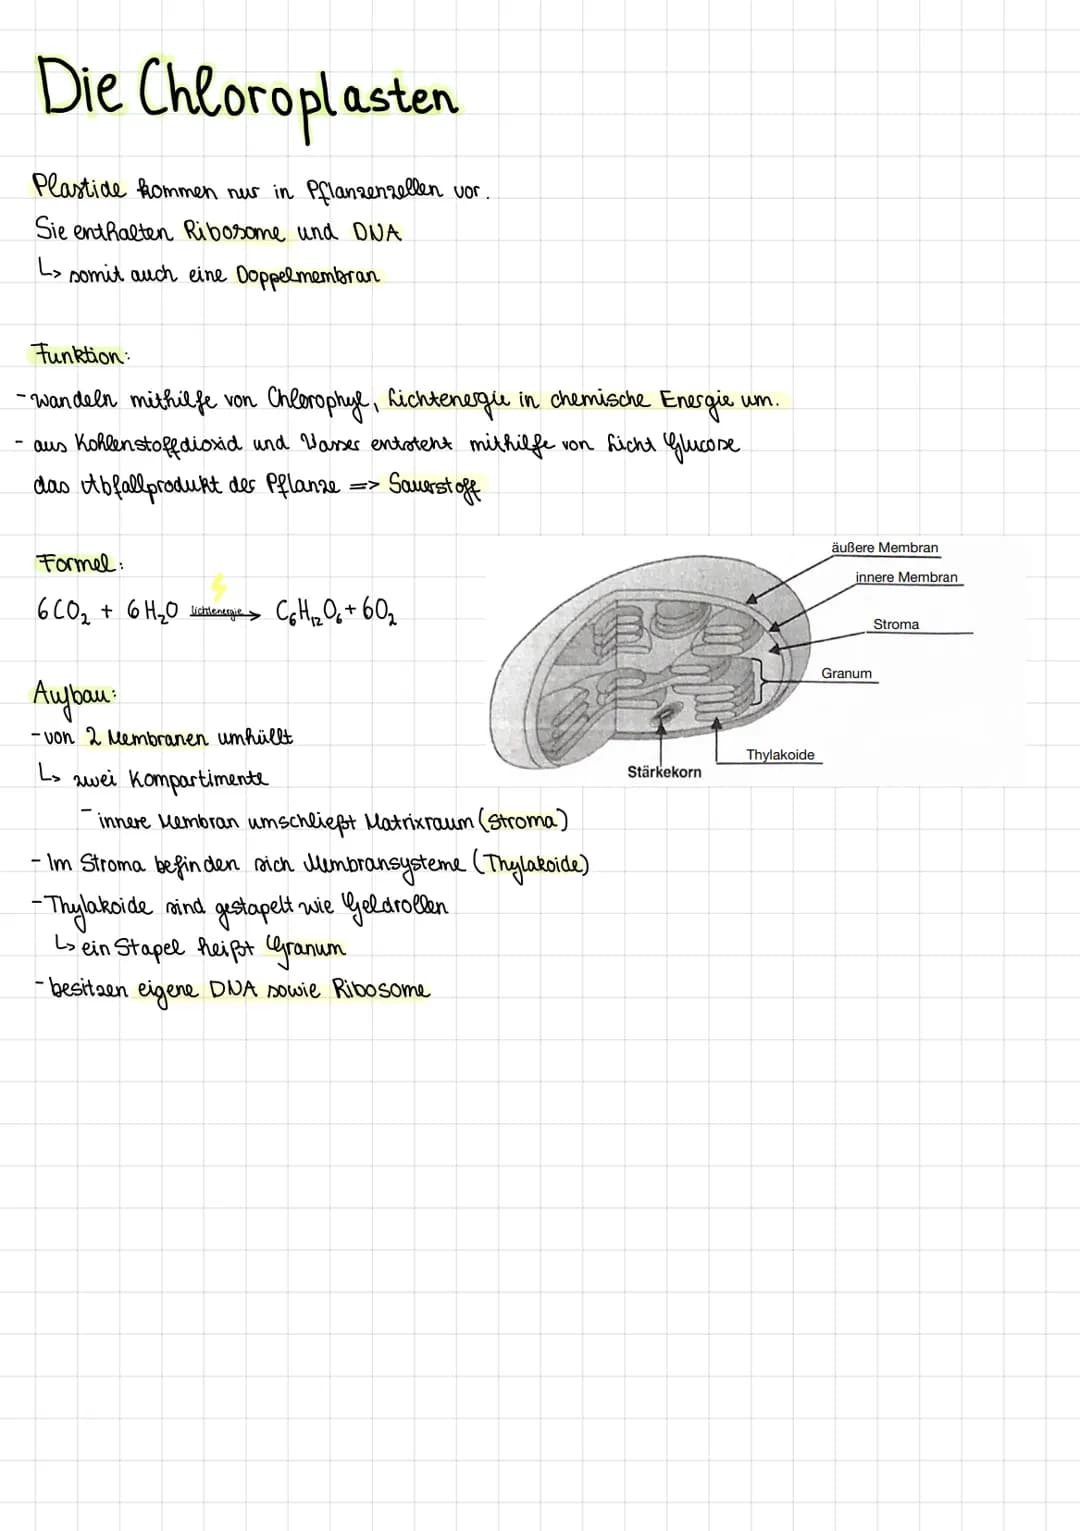 Die Chloroplasten
Plastide kommen nur in Pflanzenzellen vor.
Sie enthalten Ribosome und DNA
↳ somit auch eine Doppelmembran
Funktion:
- wandeln mithilfe von Chlorophyl, Lichtenergie in chemische Energie um.
- aus Kohlenstoffdioxid und Wasser entsteht mithilfe von Licht Glucose
das Abfallprodukt der Pflanze => Sauerstoff
Formel:
6CO₂ + 6H₂O Lichtenergie → C₆H₁₂O₆ + 6O₂
äußere Membran
innere Membran
Stroma
Granum
Thylakoide
Stärkekorn
Aufbau:
- von 2 Membranen umhüllt
↳ zwei Kompartimente
- innere Membran umschließt Matrixraum (Stroma)
- Im Stroma befinden sich Membransysteme (Thylakoide)
- Thylakoide sind gestapelt wie Geldrollen
↳ ein Stapel heißt Granum
- besitzen eigene DNA sowie Ribosome